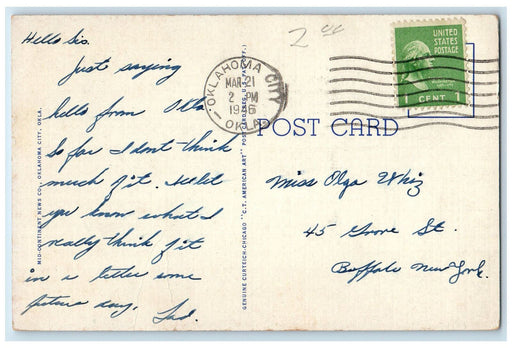 Hello Sis.
Just saying
hello from Okla
So far I dont think
much of it. Will let
you know what I
really think of it
in a letter some
future day,
2
OKLAHOMA CITY
MAR 21
2 PM
1946
OKLA
UNITED
STATES
POSTAGE
1 CENT 1
POST CARD
Miss Olga Whiz
45 Grove St.
Buffalo New York.
MID-CONTINENT NEWS CO., OKLAHOMA CITY, OKLA.
GENUINE CURTEICH-CHICAGO "C.T. AMERICAN ART" POST CARD (REG. U.S. PAT. OFF.)